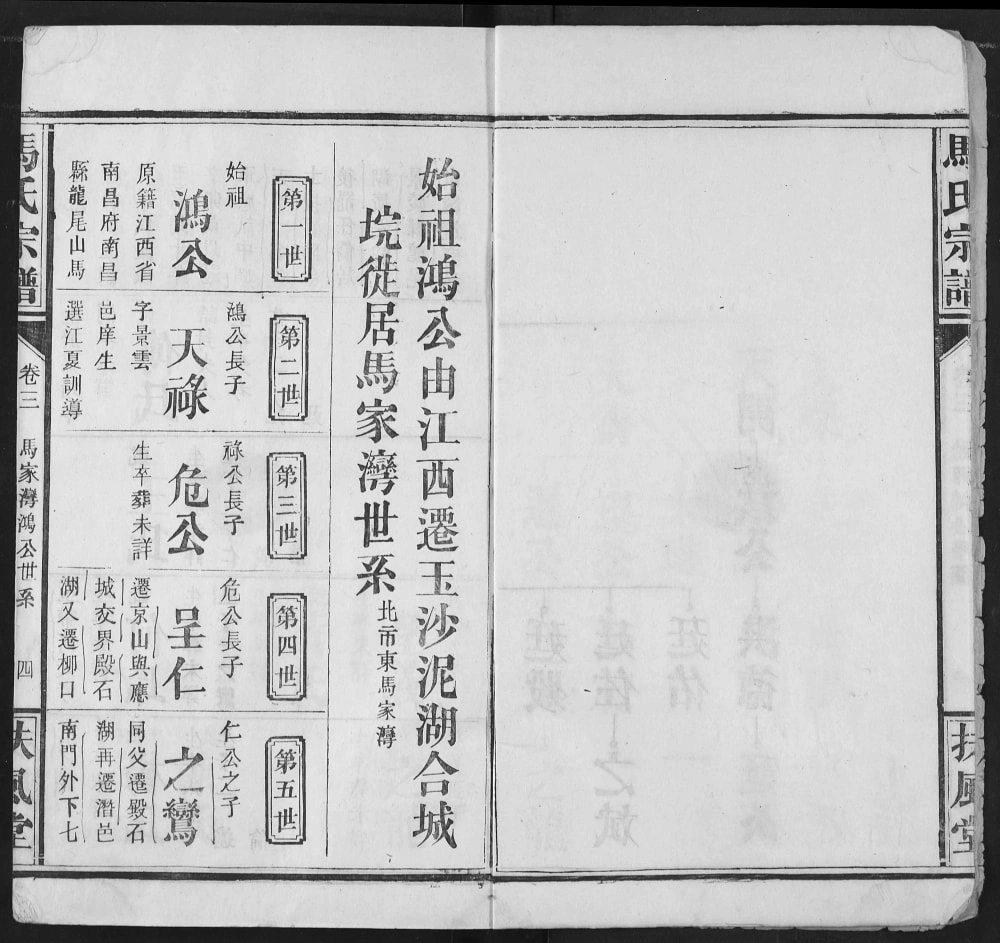 馬氏宗譜
扶風堂
始祖鴻公由江西遷玉沙泥湖合城
垸徙居馬家灣世系北市東馬家灣
第一世
始祖
鴻公
原籍江西省
南昌府南昌
縣龍尾山馬
第二世
鴻公長子
天祿
字景雲
邑庠生
選江夏訓導
第三世
祿公長子
危公
生卒葬未詳
第四世
危公長子
呈仁
遷京山與應
城交界殿石
湖又遷柳口
第五世
仁公之子
之鸞
同父遷殿石
湖再遷潛邑
南門外下七
馬氏宗譜
卷三
馬家灣鴻公世系
四
扶風堂